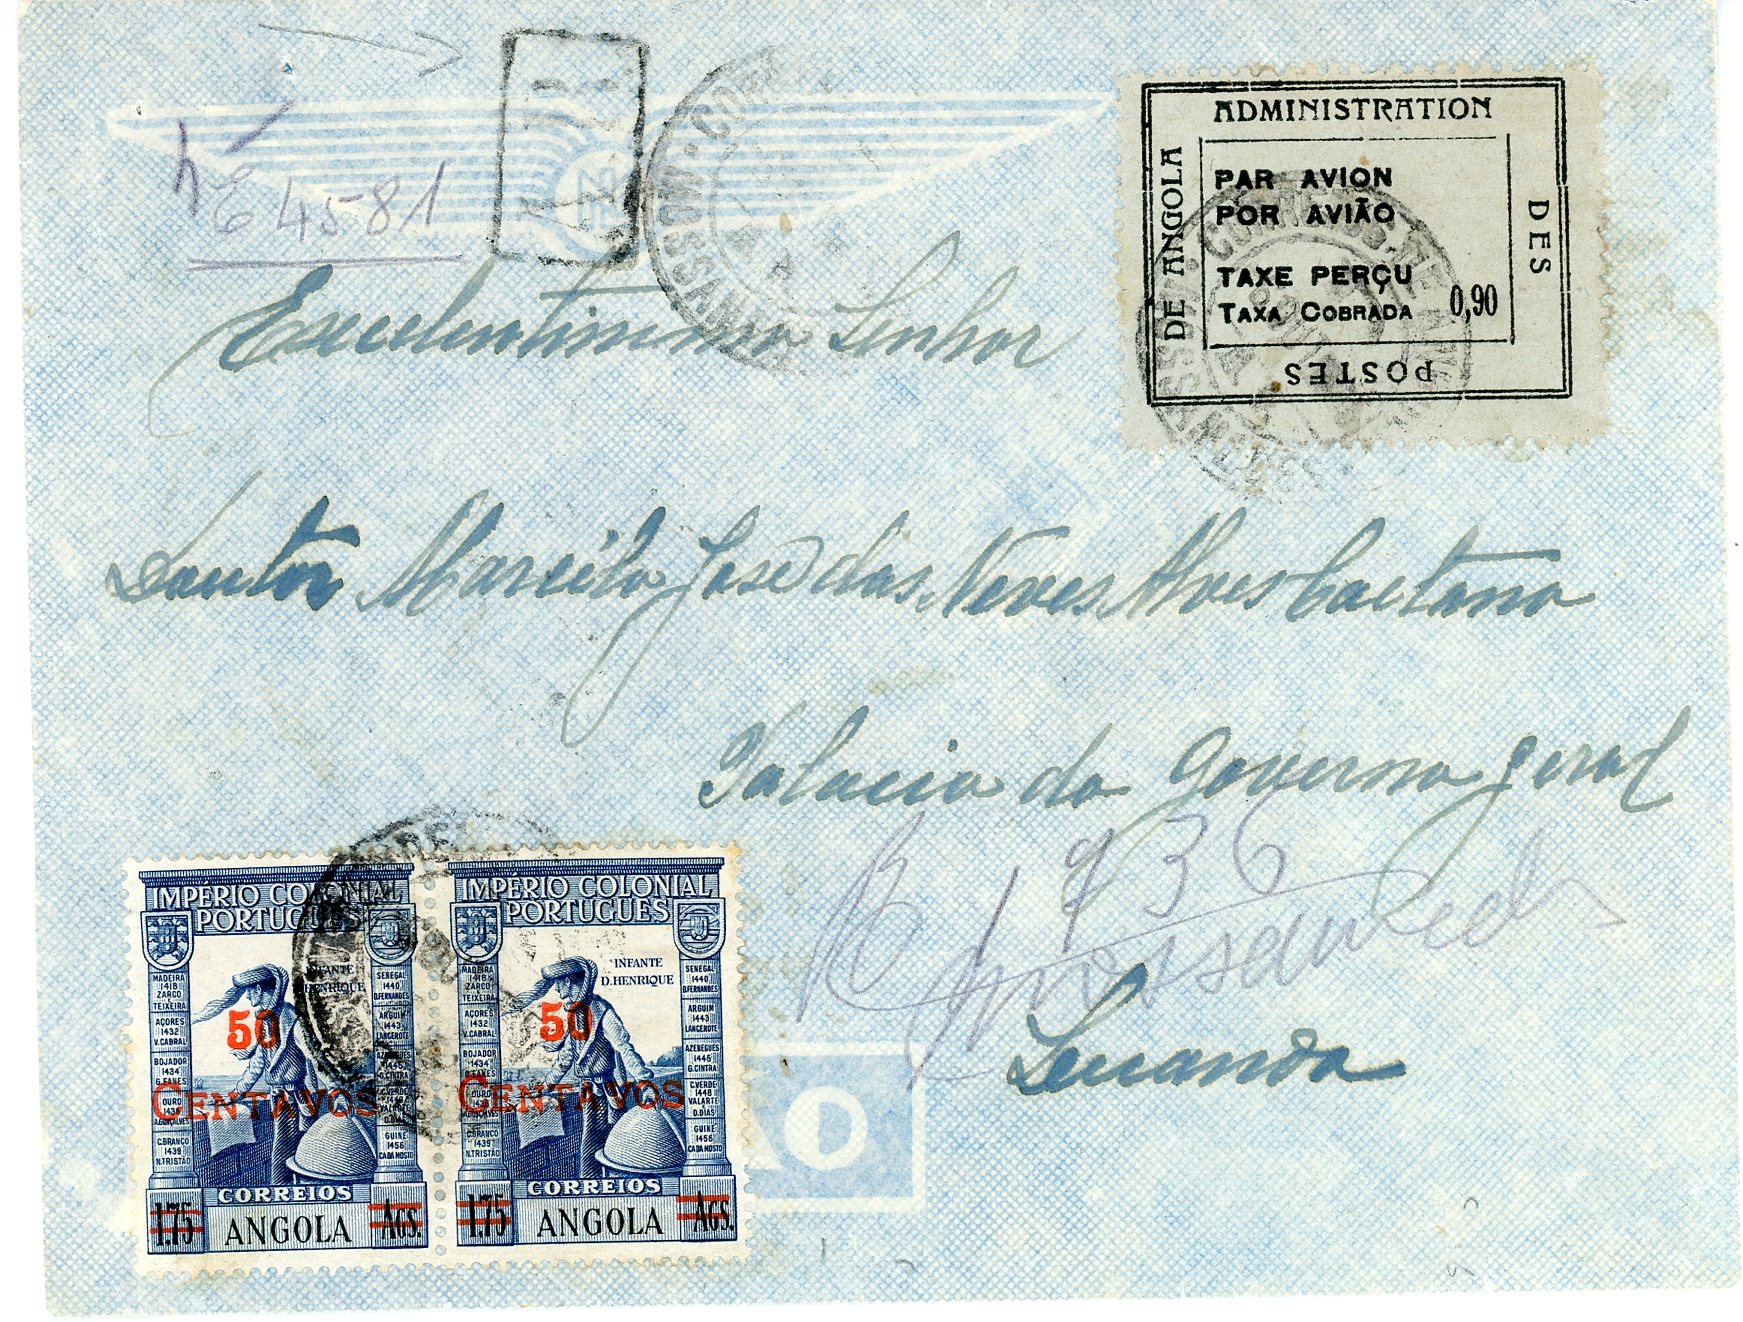 nº 64581
ADMINISTRATION
DES
POSTES
DE ANGOLA
PAR AVION
POR AVIÃO
TAXE PERÇU
TAXA COBRADA 0,90
Excelentissimo Senhor
Doutor Marcélo José das Neves Alves Caetano
Palacio do Governo geral
R 936
Mossamedes
Luanda
ÃO
IMPÉRIO COLONIAL
PORTUGUÊS
INFANTE
D. HENRIQUE
MADEIRA
1418
ZARCO
E
TEIXEIRA
AÇORES
1432
V. CABRAL
BOJADOR
1434
G. EANES
OURO
1436
A. GONÇALVES
C. BRANCO
1439
N. TRISTÃO
SENEGAL
1440
D. FERNANDES
ARGUIM
1443
LANÇEROTE
AZENEGUES
1446
G. CINTRA
C. VERDE
1448
VALARTE
GUINÉ
1456
CADAMOSTO
50
CENTAVOS
CORREIOS
1.75 ANGOLA AGS.
IMPÉRIO COLONIAL
PORTUGUÊS
INFANTE
D. HENRIQUE
MADEIRA
1418
ZARCO
E
TEIXEIRA
AÇORES
1432
V. CABRAL
BOJADOR
1434
G. EANES
OURO
1436
A. GONÇALVES
C. BRANCO
1439
N. TRISTÃO
SENEGAL
1440
D. FERNANDES
ARGUIM
1443
LANÇEROTE
AZENEGUES
1446
G. CINTRA
C. VERDE
1448
VALARTE
E
D. DIAS
GUINÉ
1456
CADAMOSTO
50
CENTAVOS
CORREIOS
1.75 ANGOLA AGS.